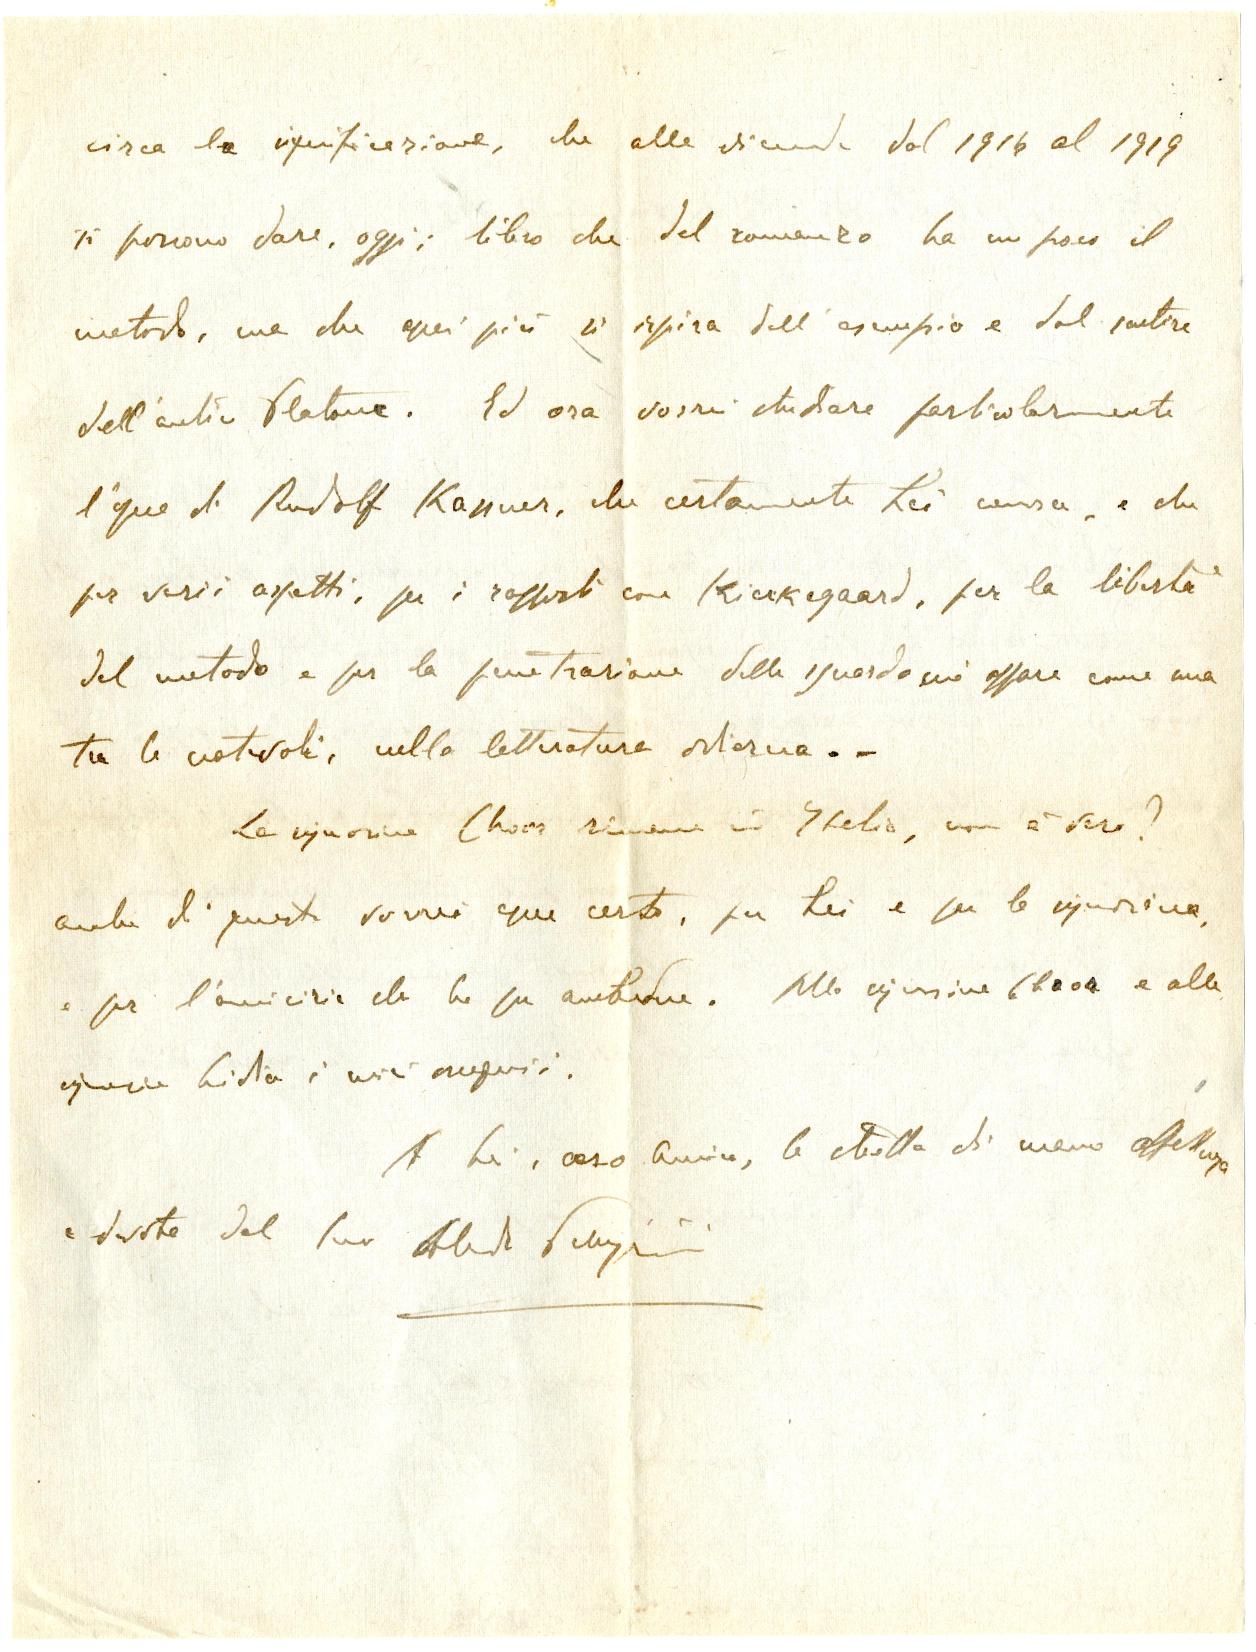 circa la significazione, che alle vicende dal 1916 al 1919
si possono dare, oggi; libro che del romanzo ha un poco il
metodo, ma che assai più si ispira dall'esempio e dal sentire
dell'antico Platone. Ed ora vorrei studiare particolarmente
di Rudolf Kassner, che certamente Lei conosce, e che
per varii aspetti, per i rapporti con Kierkegaard, per la libertà
del metodo e per la penetrazione dello sguardo mi appare come una
tra le notevoli, nella letteratura odierna. -
La signorina rimane in Italia, non è vero?
anche di questo vorrei esser certo, per Lei e per la signorina,
e per l'amicizia che ho per ambedue. Alla signorina e alla
signorina Lidia i miei ossequi.
A Lei, caro Amico, la stretta di mano affettuosa
e devota del Suo Pellegrini